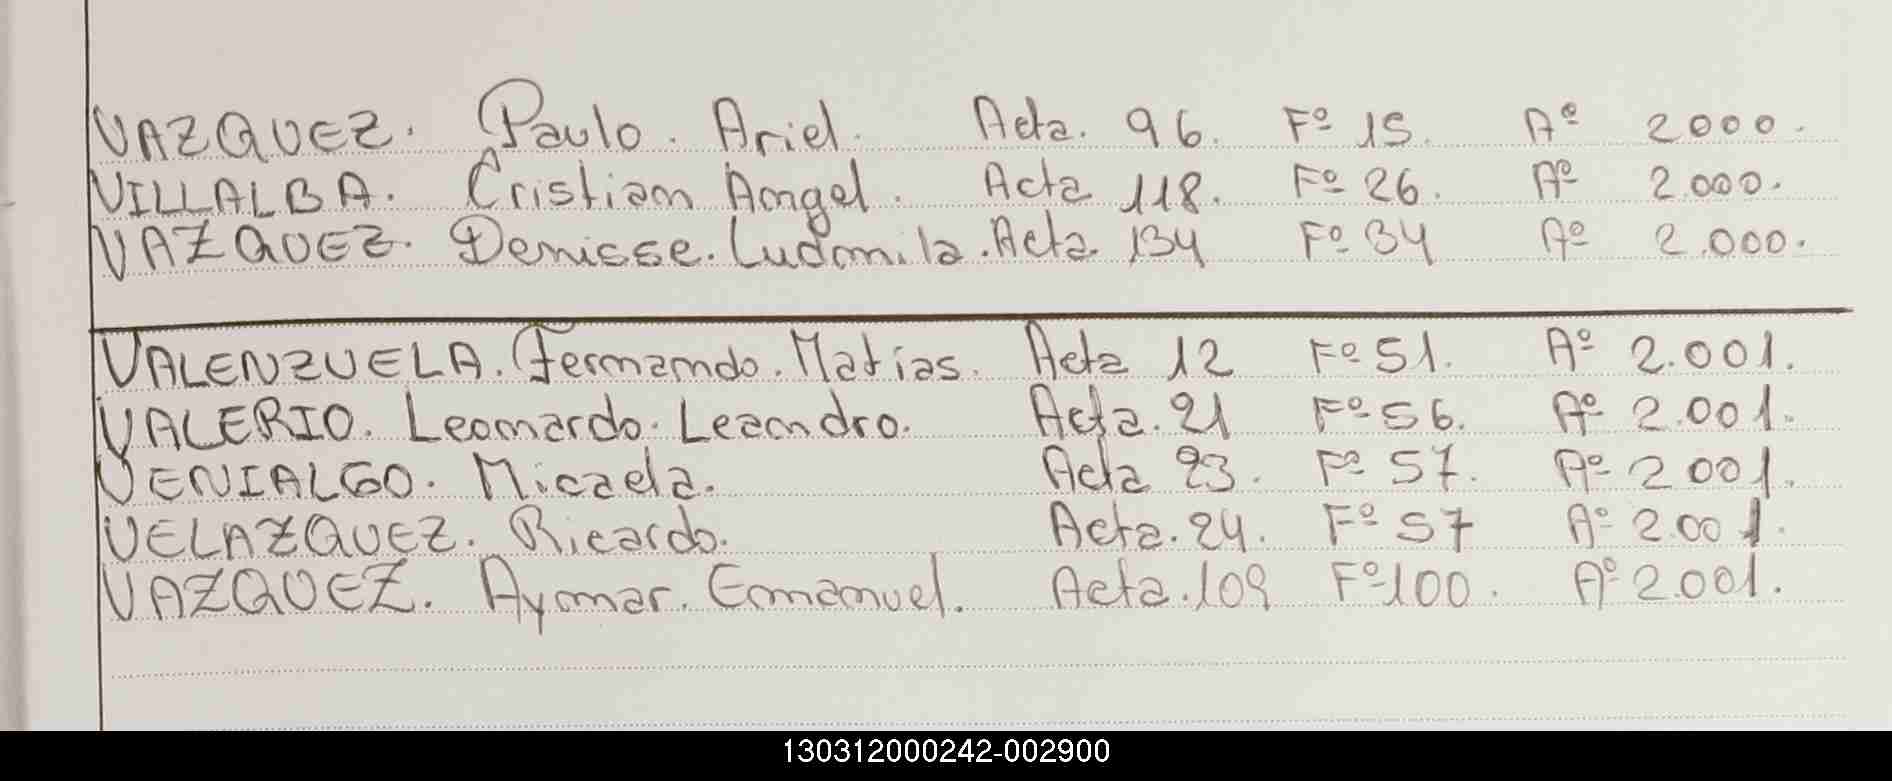 VAZQUEZ. Paulo. Ariel. Acta. 96. Fº 15. Aº 2000.
VILLALBA. Cristian Angel. Acta 118. Fº 26. Aº 2.000.
VAZQUEZ. Denisse. Ludmila. Acta. 134 Fº 34 Aº 2.000.
VALENZUELA. Fernando. Matias. Acta 12 Fº 51. Aº 2.001.
VALERIO. Leonardo. Leandro. Acta. 21 Fº 56. Aº 2.001.
VENIALGO. Micaela. Acta 23. Fº 57. Aº 2001.
VELAZQUEZ. Ricardo. Acta. 24. Fº 57 Aº 2.001.
VAZQUEZ. Aymar. Emanuel. Acta. 109 Fº 100. Aº 2.001.
130312000242-002900